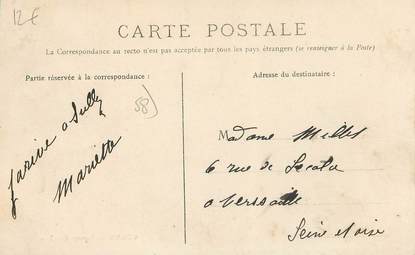 12€
CARTE POSTALE
La Correspondance au recto n'est pas acceptée par tous les pays étrangers (se renseigner à la Poste)
Partie réservée à la correspondance :
Adresse du destinataire :
58)
jarive a Sully
Mariette
Madame Millet
6 rue de
a Versaille
Seine et oise